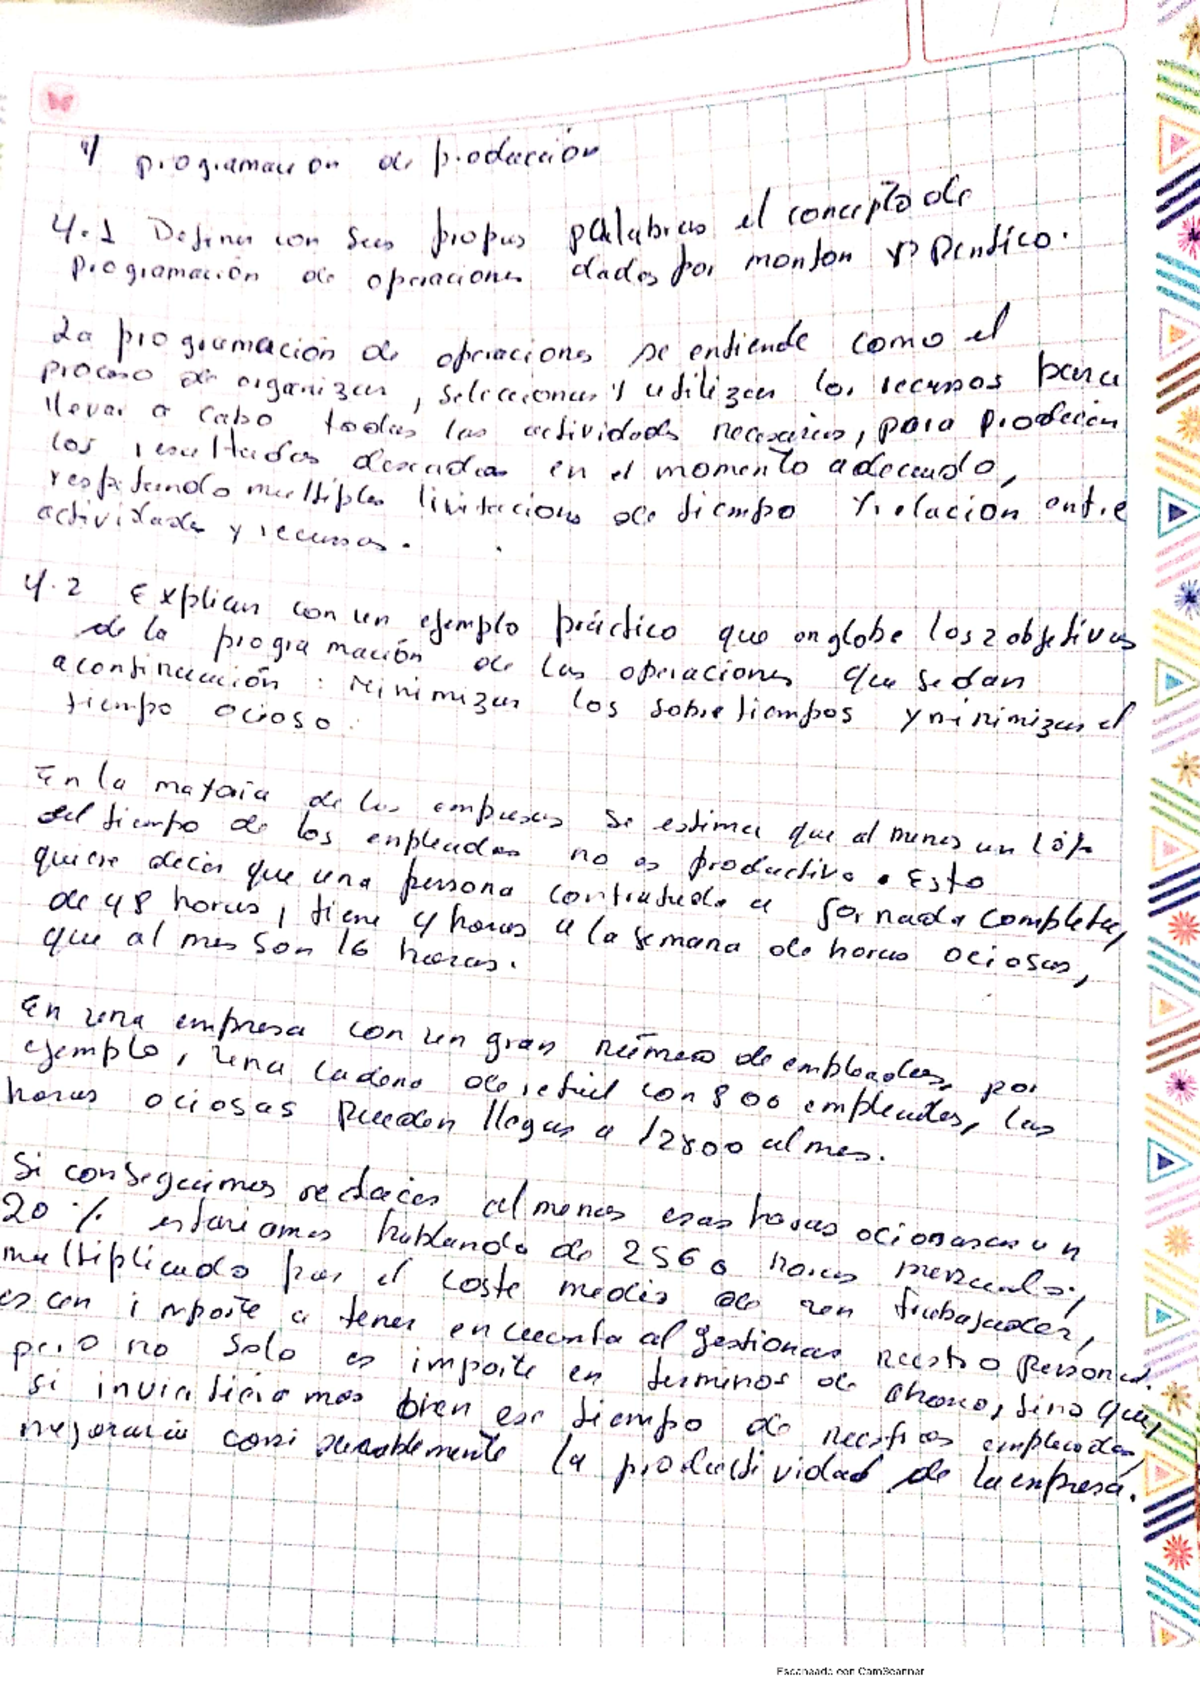 4/ programacion de producción
4.1 Definir con sus propias palabras el concepto de
programación de operaciones dados por monton y Pentico.
La programación de operaciones se entiende como el
proceso de organizar, seleccionar y utilizar los recursos para
llevar a cabo todas las actividades necesarias, para producir
los resultados deseados en el momento adecuado,
respetando multiples limitaciones de tiempo y relación entre
actividades y recursos.
4.2 Explicar con un ejemplo práctico que englobe los 2 objetivos
de la programación de las operaciones que se dan
a continuación : Minimizar los sobretiempos y minimizar el
tiempo ocioso.
En la mayoria de las empresas se estima que al menos un 10%
del tiempo de los enpleados no es productivo. Esto
quiere decir que una persona contratada a jornada completa,
de 48 horas, tiene 4 horas a la semana de horas ociosas,
que al mes son 16 horas.
En una empresa con un gran número de empleados, por
ejemplo, una cadena de retail con 800 empleados, las
horas ociosas pueden llegar a 12800 al mes.
Si conseguimos reducir al menos esas horas ociosas un
20% estariamos hablando de 2560 horas mensuales,
multiplicado por el coste medio de un trabajador,
es un importe a tener en cuenta al gestionar nuestro personal.
pero no solo es importe en terminos de ahorro, sino que,
si invirtieramos bien ese tiempo de nuestros empleados,
mejoraria considerablemente la productividad de la enpresa.
Escaneado con CamScanner